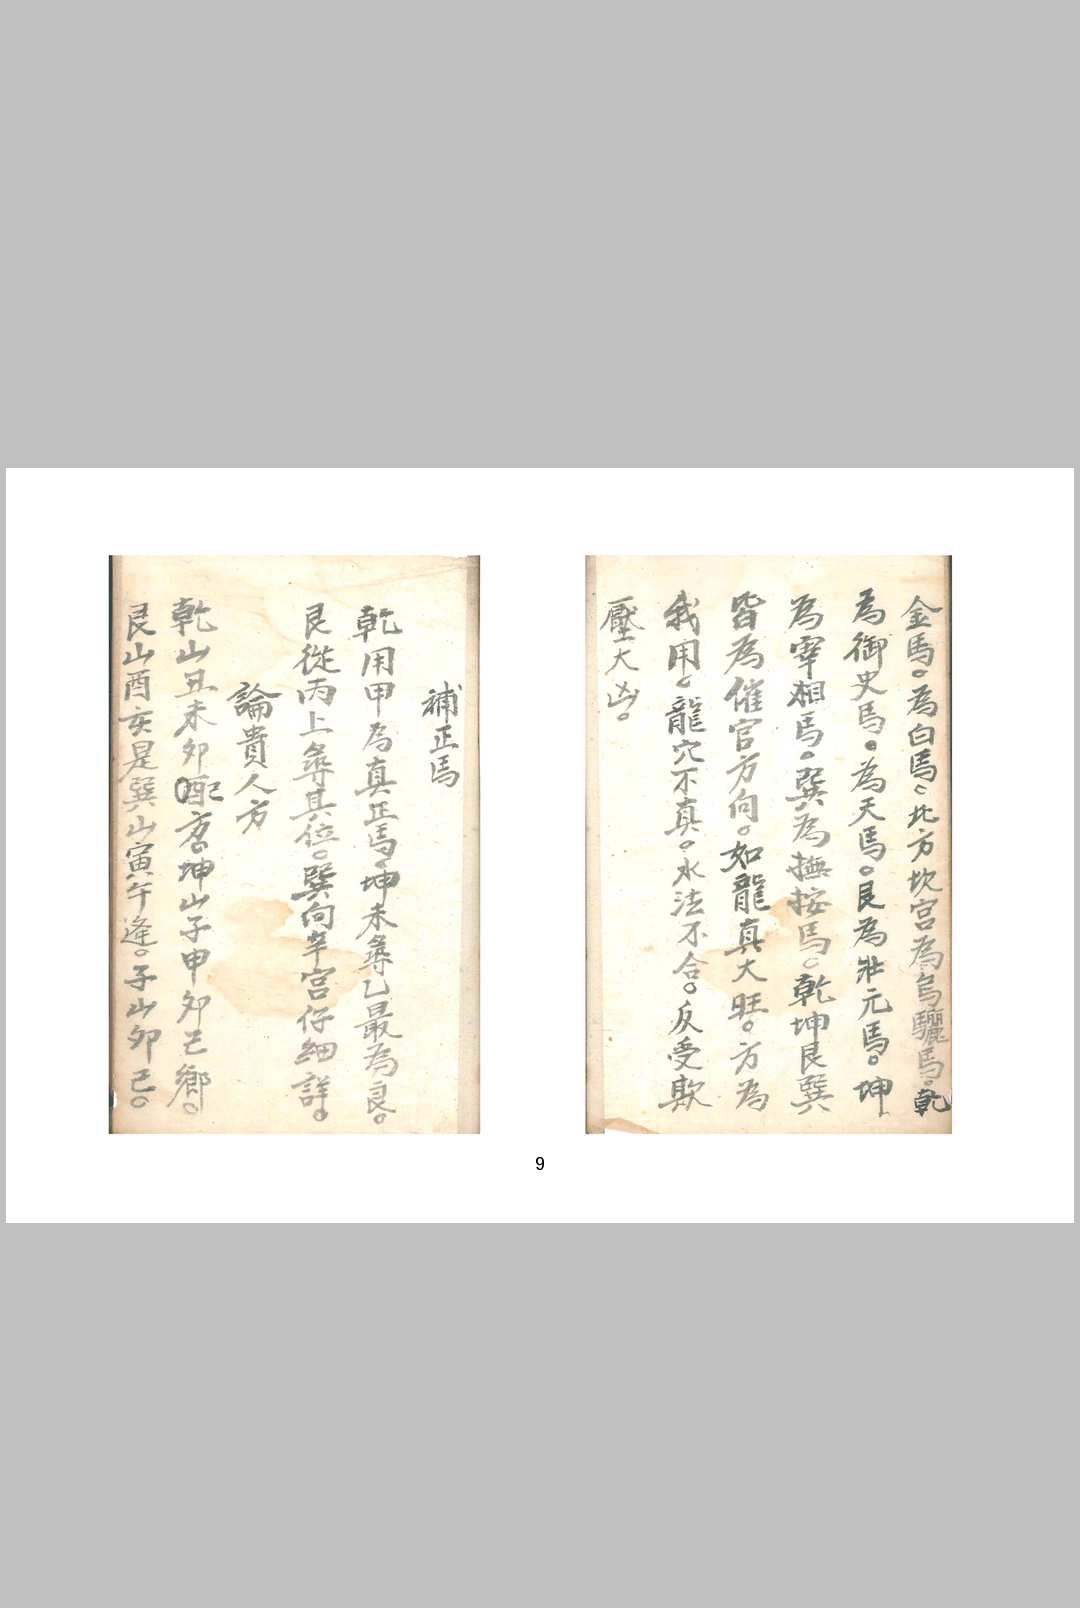 金馬。為白馬。北方坎宮為烏驪馬。乾
為御史馬。為天馬。艮為壯元馬。坤
為宰相馬。巽為撫按馬。乾坤艮巽
皆為催官方向。如龍真大旺。方為
我用。龍穴不真。水法不合。反受欺
壓大凶。
補正馬
乾用甲為真正馬。坤未尋乙最為良。
艮從丙上尋其位。巽向辛宮仔細詳。
論貴人方
乾山丑未卯配方。坤山子申卯己鄉。
艮山酉亥是巽山寅午逢。子山卯己。
9